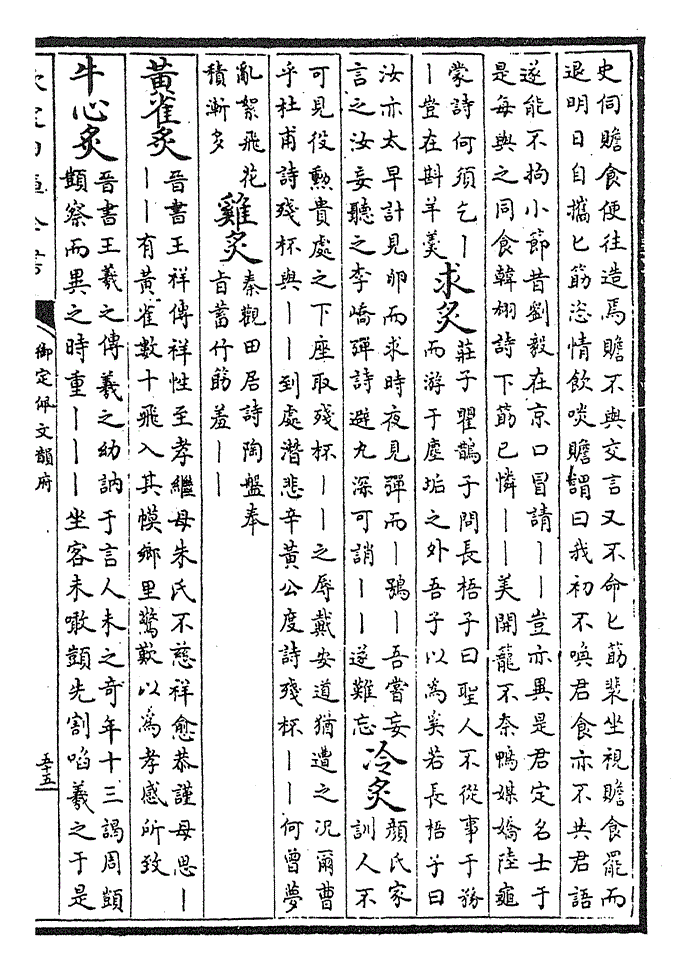 史伺贍食便往造焉贍不與交言又不命匕筯裴坐視贍食罷而
退明日自攜匕筯恣情飲啖贍謂曰我初不喚君食亦不共君語
遂能不拘小節昔劉毅在京口冒請丨丨豈亦異是君定名士于
是每與之同食韓栩詩下筯已憐丨丨美開籠不奈鴨媒嬌陸龜
蒙詩何須乞丨
丨豈在斟羊羹
求炙
莊子瞿鵲子問長梧子曰聖人不從事于務
而游于塵垢之外吾子以為奚若長梧子曰
汝亦太早計見卵而求時夜見彈而丨鴞丨吾嘗妄
言之汝妄聽之李嶠彈詩避丸深可誚丨丨遂難忘
冷炙
顏氏家
訓人不
可見役勲貴處之下座取殘杯丨丨之辱戴安道猶遭之况爾曹
乎杜甫詩殘杯與丨丨到處潛悲辛黃公度詩殘杯丨丨何曾夢
亂絮飛花
積漸多
雞炙
秦觀田居詩陶盤奉
旨蓄竹筯羞丨丨
黃雀炙
晉書王祥傳祥性至孝繼母朱氏不慈祥愈恭謹母思丨
丨丨有黃雀數十飛入其幙鄉里驚歎以為孝感所致
牛心炙
晉書王羲之傳羲之幼訥于言人未之奇年十三謁周顗
顗察而異之時重丨丨丨坐客未噉顗先割啗羲之于是
欽定四庫全書
御定佩文韻府
五十五